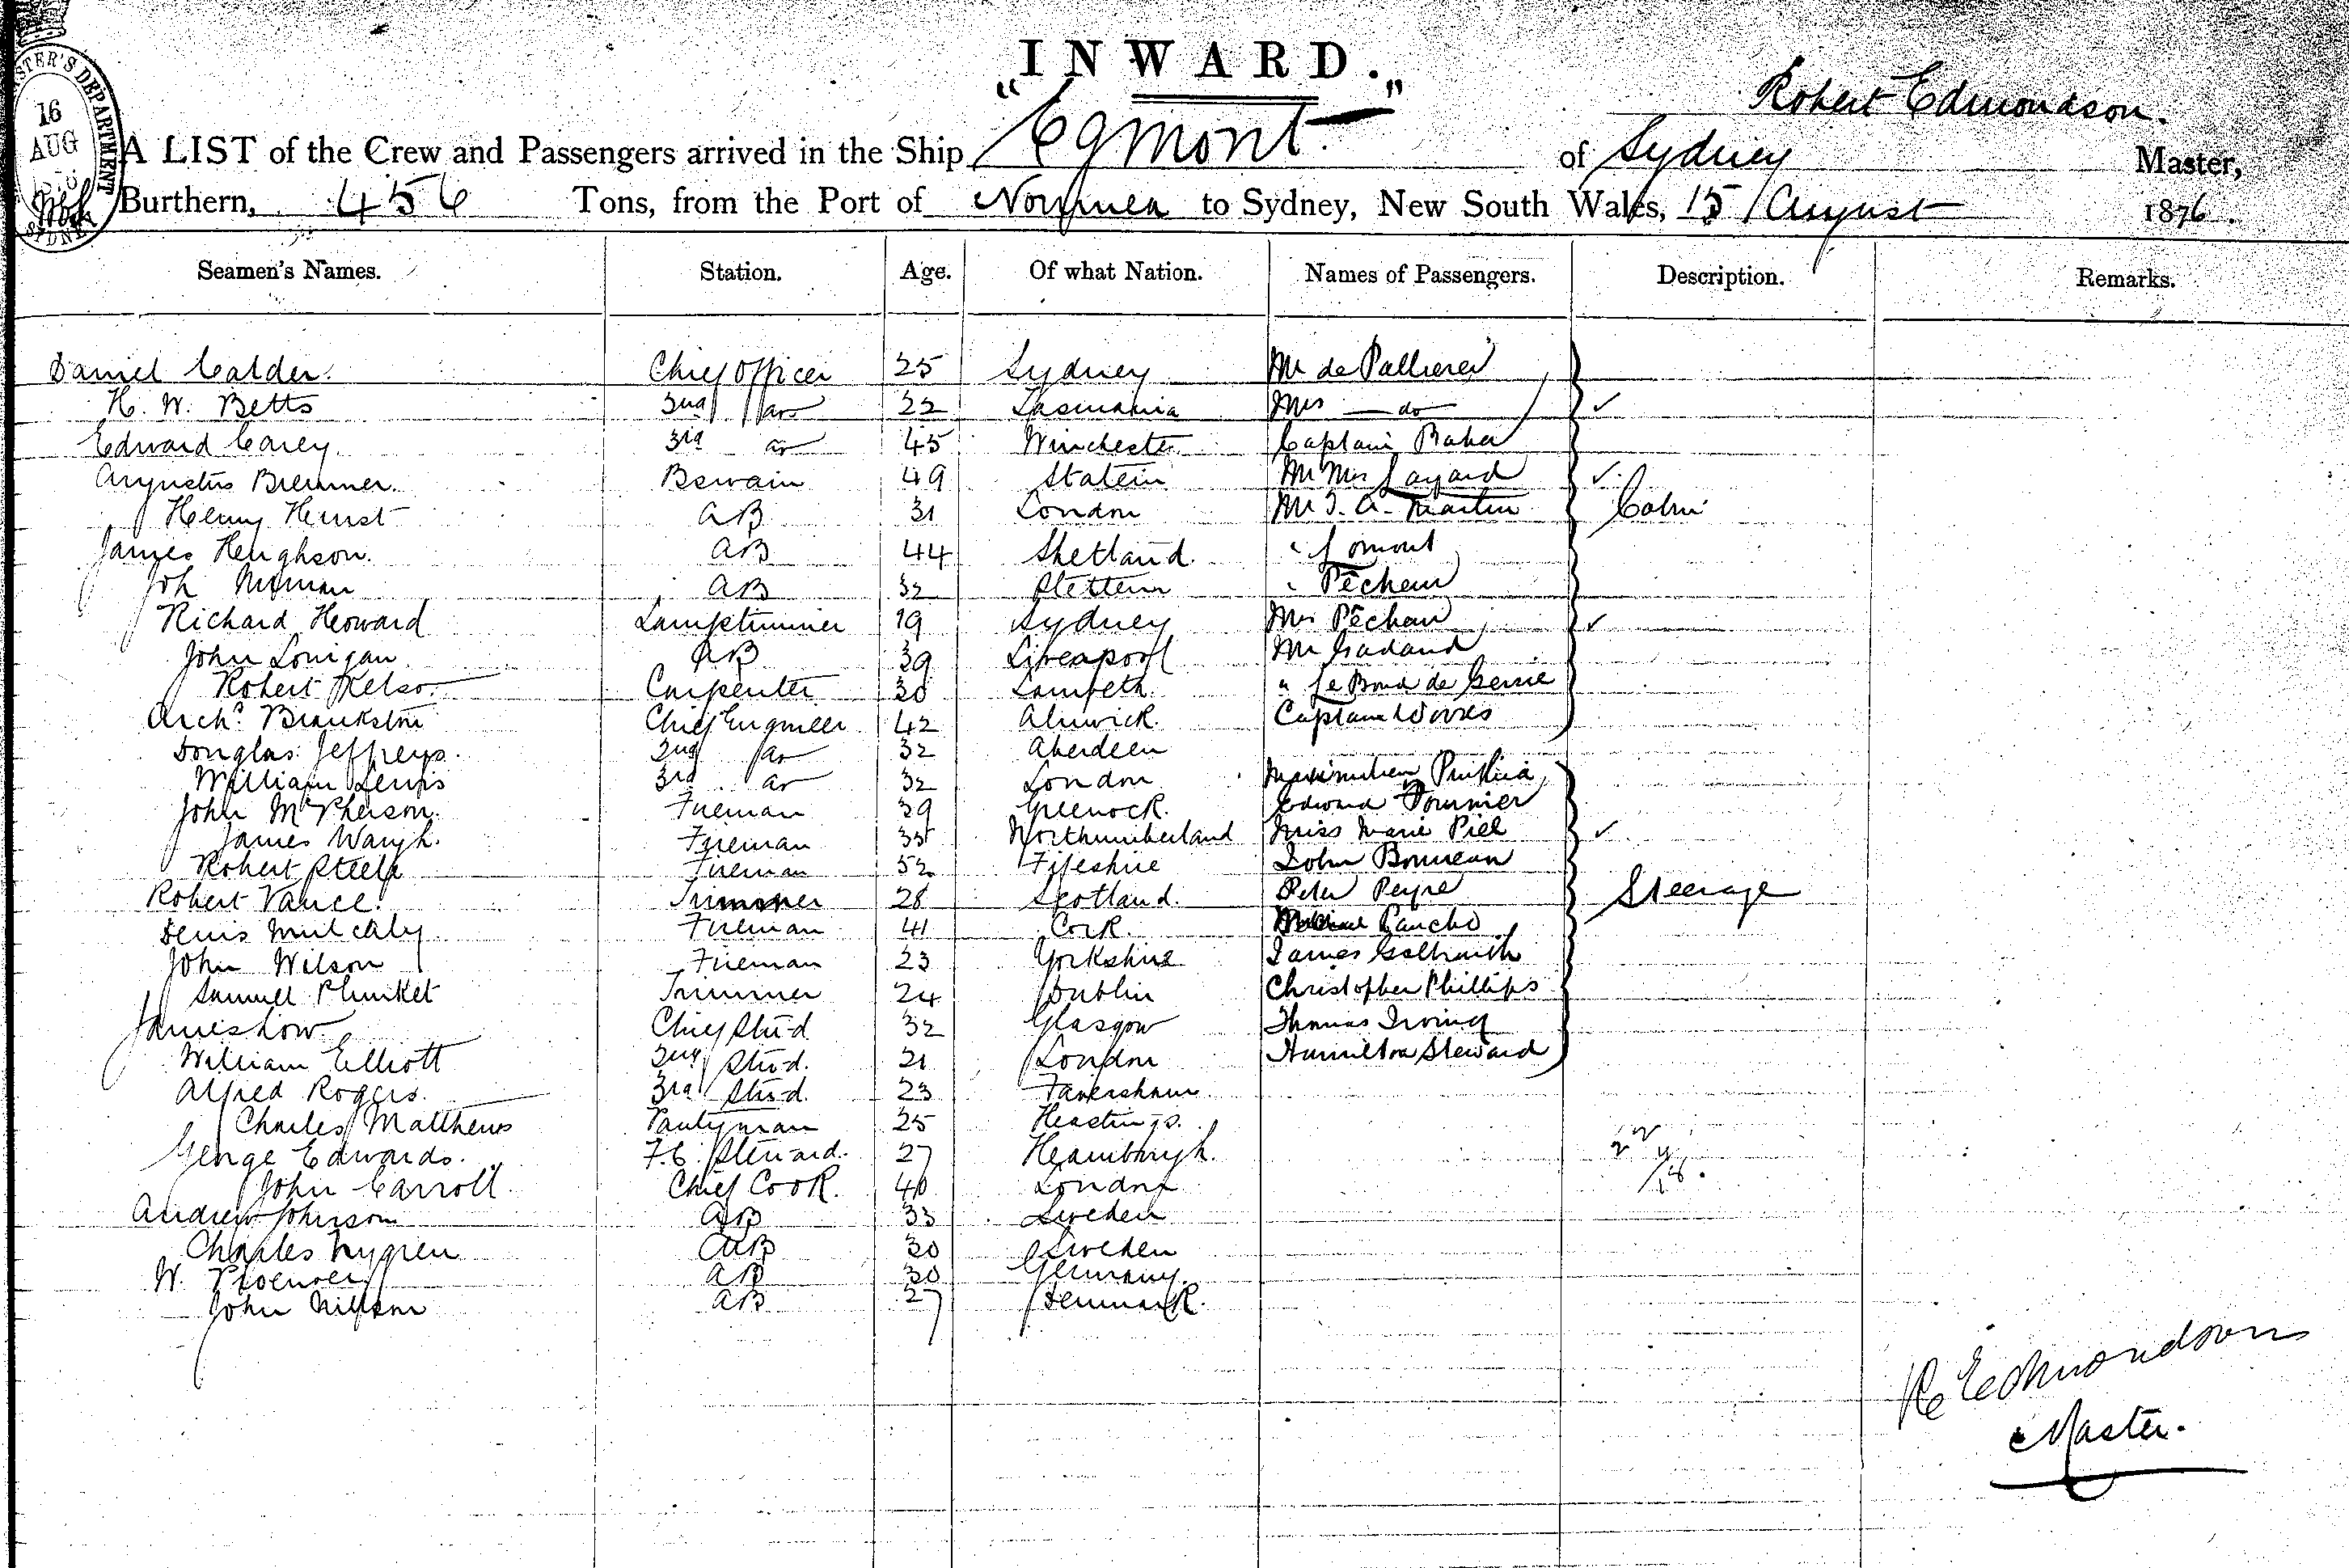 INWARD.
STER'S DEPARTMENT
16
AUG
SYDNE
Robert Edmondson.
A LIST of the Crew and Passengers arrived in the Ship "Egmont" of Sydney Master,
Burthern, 456 Tons, from the Port of Noumea to Sydney, New South Wales, 15 August 1876.
Seamen's Names. Station. Age. Of what Nation. Names of Passengers. Description. Remarks.
Daniel Calder. Chief Officer 25 Sydney Mr de
H. W. Betts 2nd do 22 Tasmania Mrs do
Edward Carey. 3rd do 45 Winchester Captain Baker
Augustus Bremner. Boswain 49 Statein Mr Mrs Layard
Henry Hurst AB 31 London Mr J. A. Martin Cabin
James Hughson. AB 44 Shetland. " Lomont
Joh AB 32 Stettein " Pêcheur
Richard Howard Lamptrimmer 19 Sydney Mrs Pêcheur
John Lonigan AB 39 Liverpool Mr
Robert Kelso. Carpenter 30 Lambeth. " Le de
Archd. Chief Engineer 42 Alnwick. Captain
Douglas Jeffreys. 2nd do 32 Aberdeen
William Lewis 3rd do 32 London
John McPherson. Fireman 39 Greenock. Edward Fournier
James Waugh. Fireman 35 Northumberland Miss Marie Piel
Robert Steele Fireman 52 Fifeshire John Bonneau
Robert Vance. Trimmer 28 Scotland. Peter Peyre Steerage
Denis Mulcahy Fireman 41 Cork. Pancho
John Wilson Fireman 23 Yorkshire James Galbraith
Samuel Plunket Trimmer 24 Dublin Christopher Phillips
James Low Chief Stwd 32 Glasgow Thomas Irving
William Elliott 2nd Stwd. 21 London Hamilton Steward
Alfred Rogers. 3rd Stwd. 23 Faversham
Charles Matthews Pantryman 25 Hastings.
George Edwards. F.C. Steward. 27 Hamburgh.
John Carroll Chief Cook. 40 London
Andrew Johnson AB 33 Sweden
Charles Nygren AB 30 Sweden
W. AB 30 Germany.
John Nilson AB 27 Denmark.
R Edmondson
Master.